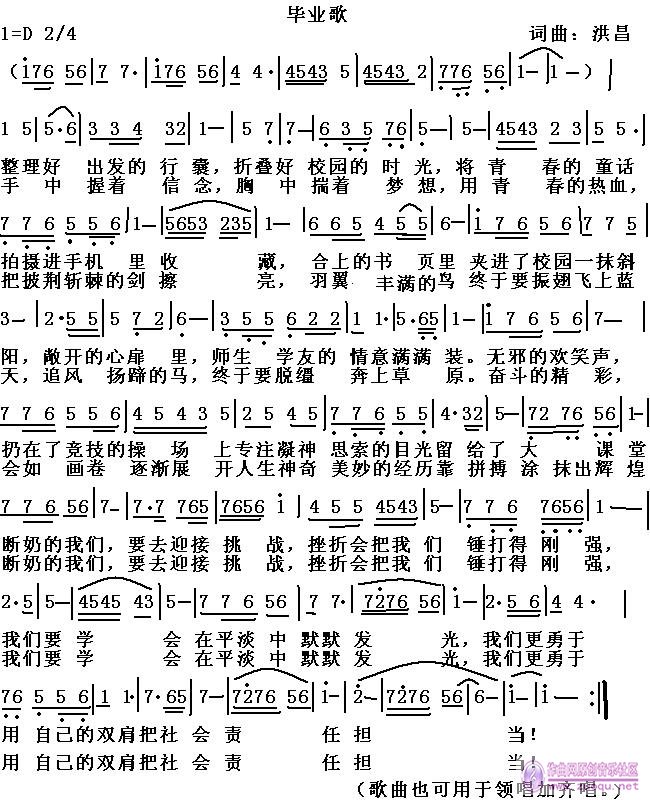 毕业歌
1=D 2/4 词曲：洪昌
（176 56 | 7 7· | 176 56 | 4 4· | 4543 5 | 4543 2 | 776 56 | 1- | 1- ）
1 5 | 5·6 | 3 3 4 32 | 1- | 5 7 | 7- | 6 3 5 76 | 5- | 5- | 4543 2 3 | 5 5·
整理好 出发的 行 囊，折叠好 校园的 时 光，将 青 春的 童话
手 中 握着 信 念，胸 中 揣着 梦 想，用 青 春的热血，
7 7 6 5 5 6 | 1- | 5653 235 | 1- | 6 6 5 4 5 5 | 6- | 1 7 6 5 6 | 7 7 5
拍摄进手机 里 收 藏，合上的书 页里 夹进了校园一抹斜
把披荆斩棘的剑 擦 亮，羽翼 丰满的鸟 终于要振翅飞上蓝
3- | 2·5 5 | 5 7 2 | 3 5 5 6 2 2 | 1 1 | 5·65 | 1- | 1 7 6 5 6 | 7-
阳，敞开的心扉 里，师生 学友的 情意满满 装。无邪的欢笑声，
天，追风 扬蹄的马，终于要脱缰 奔上草 原。奋斗的精 彩，
7 7 6 5 5 6 | 4 5 4 3 | 2 5 4 5 | 7 7 6 5 5 | 4·32 | 5- | 72 76 56 | 1-
扔在了竞技的操 场 上专注凝神 思索的目光留 给了 大 课堂
会如 画卷 逐渐展 开人生神奇 美妙的经历靠 拼搏 涂 抹出辉 煌
7 7 6 56 | 7- | 7·7 765 | 7656 1 | 4 5 5 4543 | 5- | 7 7 6 7656 | 1-
断奶的我们，要去迎接 挑 战，挫折会把我 们 锤打得 刚 强，
断奶的我们，要去迎接 挑 战，挫折会把我 们 锤打得 刚 强，
2·5 | 5- | 4545 43 | 5- | 7 7 6 56 | 7 7· | 7276 56 | 1- | 2·5 6 | 4 4·
我们要 学 会 在平淡 中 默默 发 光，我们更勇于
我们要 学 会 在平淡 中 默默 发 光，我们更勇于
76 5 5 6 | 1 1· | 7·65 | 7- | 7276 56 | 1- | 2- | 7276 56 | 6- | 1- | 1- :||
用 自己的双肩把社 会 责 任 担 当！
用 自己的双肩把社 会 责 任 担 当！
（歌曲也可用于领唱加齐唱。）